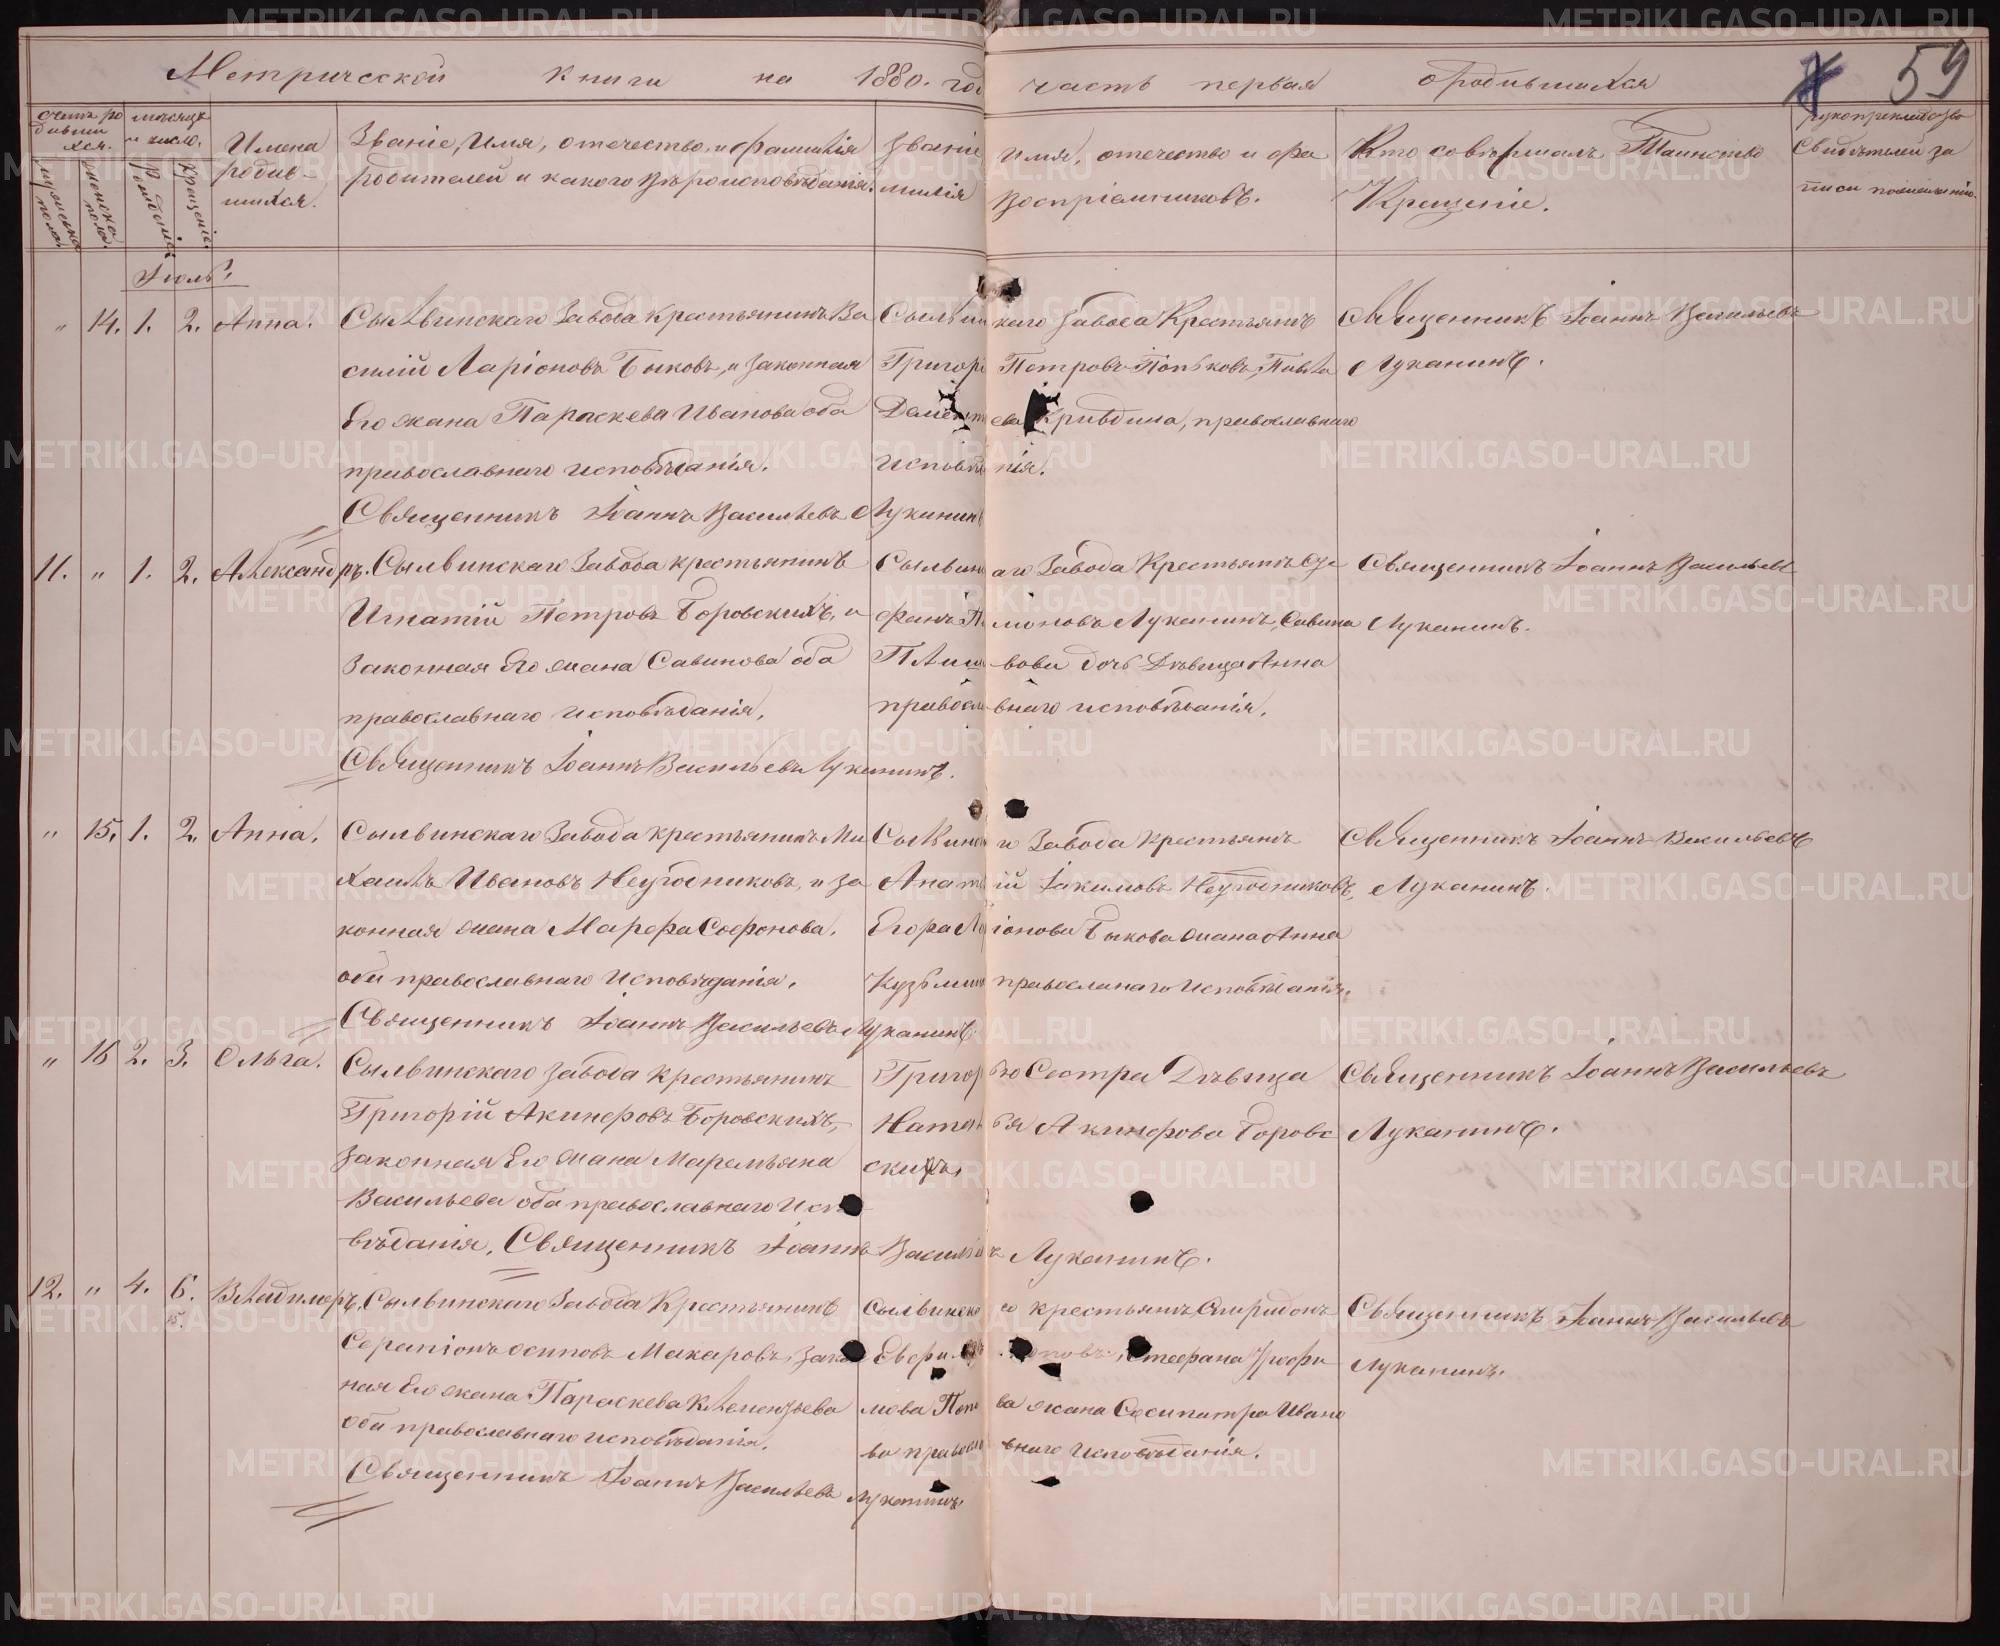 Метрической книги на 1880. год часть первая о родившихся
59
счетъ ро
дивши
хся.
мужеска
пола.
женска
пола.
мѣсяцъ
и число.
Рожденія
Крещенія.
Имена
родив-
шихся.
Званіе, Имя, отечество, и фамилія
родителей и какого Вѣроисповѣданія.
Званіе имя, отечество и фа
милія Воспріемниковъ.
Кто совершалъ Таинство
Крещеніе.
рукоприкладство
Свидѣтелей за
писи
Іюль.
" 14. 1. 2. Анна. Сылвинскаго Завода крестьянинъ Ва
силій Ларіоновъ Быковъ, и законная
Его жена Параскева Иванова оба
православнаго исповѣданія.
Священникъ Іоаннъ Васильевъ Луканинъ
Сылвин каго Завода Крестьянъ
Григорі Петровъ Попковъ,
Дамент ева Кривдина, православнаго
исповѣда нія.
Священникъ Іоаннъ Васильевъ
Луканинъ.
11. " 1. 2. Александръ. Сылвинскаго Завода крестьянинъ
Игнатій Петровъ Боровскихъ, и
Законная Его жана Савинова оба
православнаго исповѣданія.
Священникъ Іоаннъ Васильевъ Луканинъ.
Сылвинс аго Завода Крестьянъ
моновъ Луканинъ, Савина
вова дочь Дѣвица Анна
правосла внаго исповѣданія.
Священникъ Іоаннъ Васильевъ
Луканинъ.
" 15. 1. 2. Анна. Сылвинскаго Завода крестьянинъ Ми
хаилъ Ивановъ Неугодниковъ, и за
конная жана Марфа Софонова,
оба православнаго Исповѣданія.
Священникъ Іоаннъ Васильевъ Луканинъ.
Сылвинска го Завода крестьянъ
Анат ій Іакимовъ Неугодниковъ,
Егора Ла ріонова Быкова жана Анна
Кузьмин православнаго Исповѣданія.
Священникъ Іоаннъ Васильевъ
Луканинъ.
" 16 2. 3. Ольга. Сылвинскаго Завода крестьянинъ
Григорій Акинфовъ Боровскихъ,
Законная Его жана Маремьяна
Васильева оба православнаго Испо
вѣданія, Священникъ Іоаннъ Васильевъ Луканинъ.
Григор ьо Сестра Дѣвица
Натал ья Акинфова Боровс
скихъ,
Священникъ Іоаннъ Васильевъ
Луканинъ.
12. " 4. 6. Владиміръ. Сылвинскаго Завода Крестьянинъ
Серапіонъ Осиповъ Макаровъ, Зако
ная Его жана Параскева Клементьева
оба православнаго исповѣданія.
Священникъ Іоаннъ Васильевъ Луканинъ.
Сылвинска го крестьянъ Спиридонъ
Стефана Трофи
мова Попо ва жана Сосипатра Ивано
ва правосла внаго Исповѣданія.
Священникъ Іоаннъ Васильевъ
Луканинъ.
METRIKI.GASO-URAL.RU